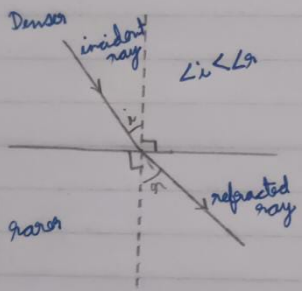 Denser
incident
ray
∠i<∠r
i
r
refracted
ray
rarer